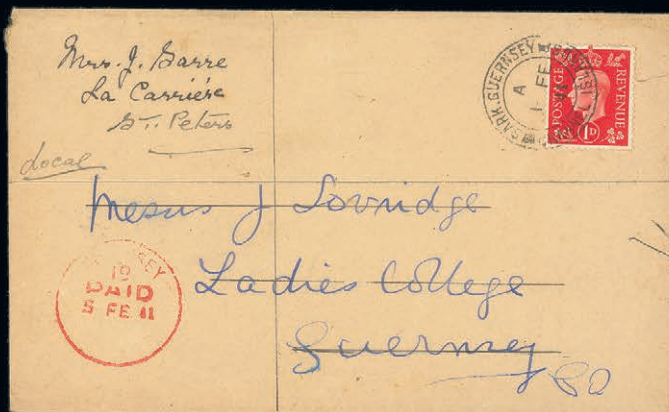 Mrs. J. Sarre
La Carrière
St. Peters
Local
SARK. GUERNSEY
A
1 FE
POSTAGE
REVENUE
1D
Messrs J Lovridge
Ladies College
Guernsey
19
PAID
5 FE 41